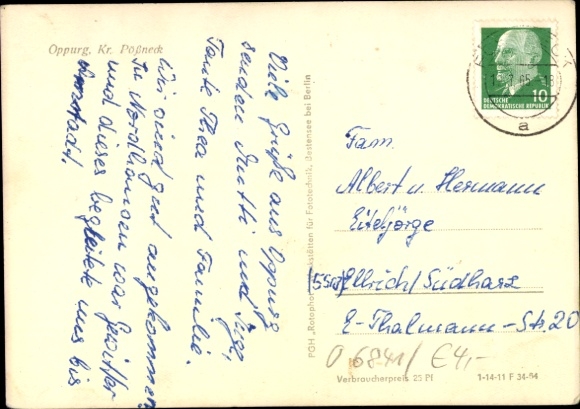 Oppurg, Kr. Pößneck
Viele Grüße aus Oppurg
senden Mutti und Inge,
Tante Thea und Familie.
Wir sind gut angekommen
In Nordhausen war Gewitter
und dieses begleitete uns bis
Arnstadt.
PGH „Rotophot" Werkstätten für Fototechnik, Bestensee bei Berlin
DEUTSCHE
DEMOKRATISCHE REPUBLIK
10
65
a
Fam.
Albert u. Hermann
Eitejörge
Ellrich/Südharz
E-Thälmann-Str. 20
06841/ €4,-
Verbraucherpreis 25 Pf
1-14-11 F 34-64